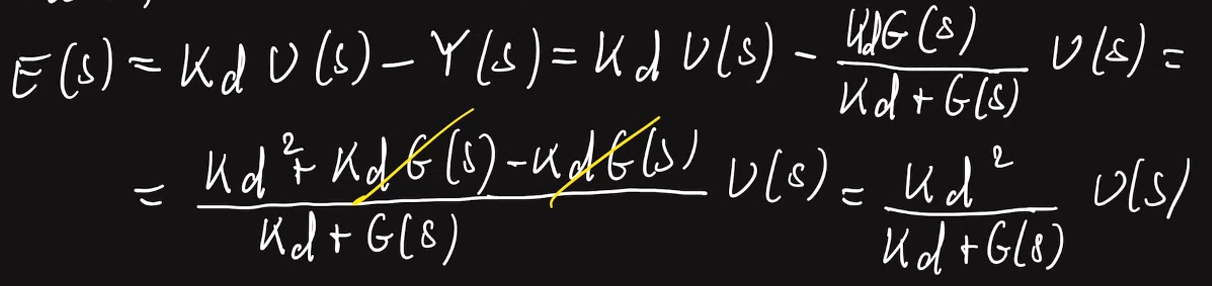 E(s) = Kd U(s) - Y(s) = Kd U(s) - \frac{KdG(s)}{Kd + G(s)} U(s) =
= \frac{Kd^2 + KdG(s) - KdG(s)}{Kd + G(s)} U(s) = \frac{Kd^2}{Kd + G(s)} U(s)